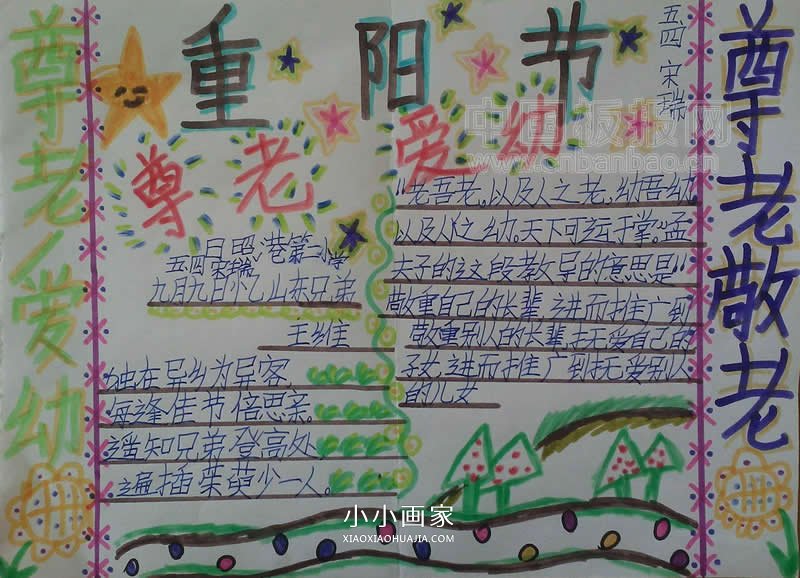 重阳节
五四 宋瑞
尊老爱幼
尊老敬老
尊老爱幼
中国板报网
www.cnbanbao.cn
日照港第二小学
五四宋瑞
九月九日忆山东兄弟
王维
独在异乡为异客,
每逢佳节倍思亲。
遥知兄弟登高处,
遍插茱萸少一人。
“老吾老,以及人之老,幼吾幼
以及人之幼。天下可运于掌。”孟
夫子的这段教导的意思是“
敬重自己的长辈,进而推广到
敬重别人的长辈,抚爱自己的
子女,进而推广到抚爱别人
的儿女
小小画家
XIAOXIAOHUAJIA.COM